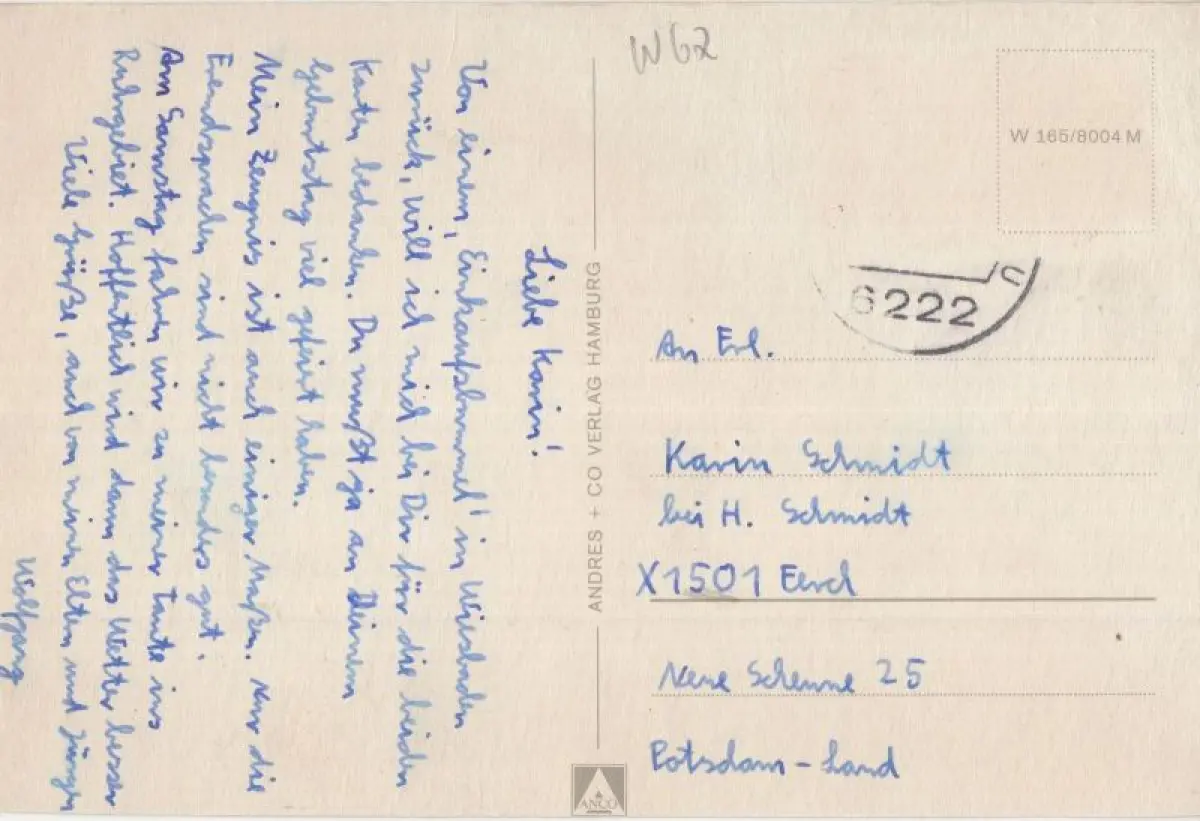 Liebe Karin!
Von einem, Einkaufsbummel' in Wiesbaden
zurück, will ich mich bei Dir für die beiden
Karten bedanken. Du mußt ja an Deinem
Geburtstag viel gefeiert haben.
Mein Zeugnis ist auch einiger Maßen. Nur die
Fremdsprachen sind nicht besonders gut.
Am Samstag fahren wir zu meiner Tante ins
Ruhrgebiet. Hoffentlich wird dann das Wetter besser
Viele Grüße, auch von meinen Eltern und Jürgen
Wolfgang
ANDRES + CO VERLAG HAMBURG
ANCO
W 62
W 165/8004 M
6222
An Frl.
Karin Schmidt
bei H. Schmidt
X1501
Neue Scheune 25
Potsdam-Land